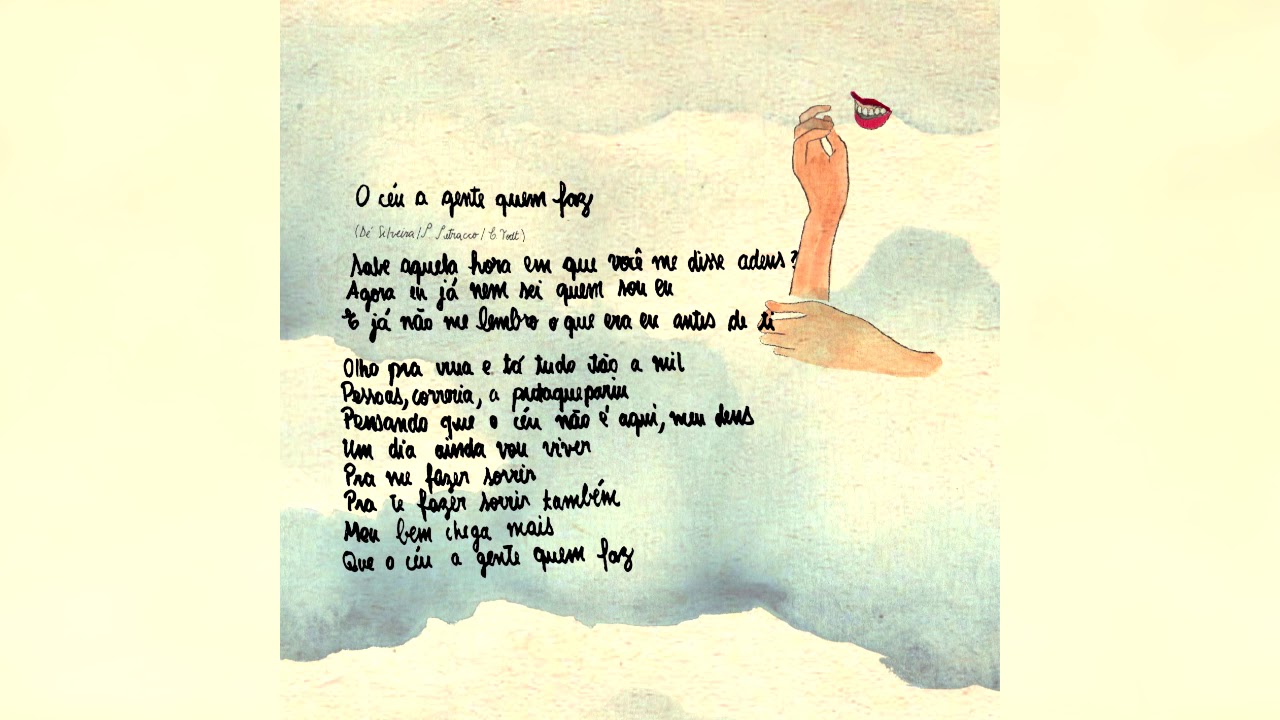 O céu a gente quem faz
(Dé Silveira / P. Petracco / C. Vodt)
Sabe aquela hora em que você me disse adeus?
Agora eu já nem sei quem sou eu
E já não me lembro o que era eu antes de ti
Olho pra rua e tá tudo tão a mil
Pessoas, correria, a putaquepariu
Pensando que o céu não é aqui, meu deus
Um dia ainda vou viver
Pra me fazer sorrir
Pra te fazer sorrir também
Meu bem chega mais
Que o céu a gente quem faz